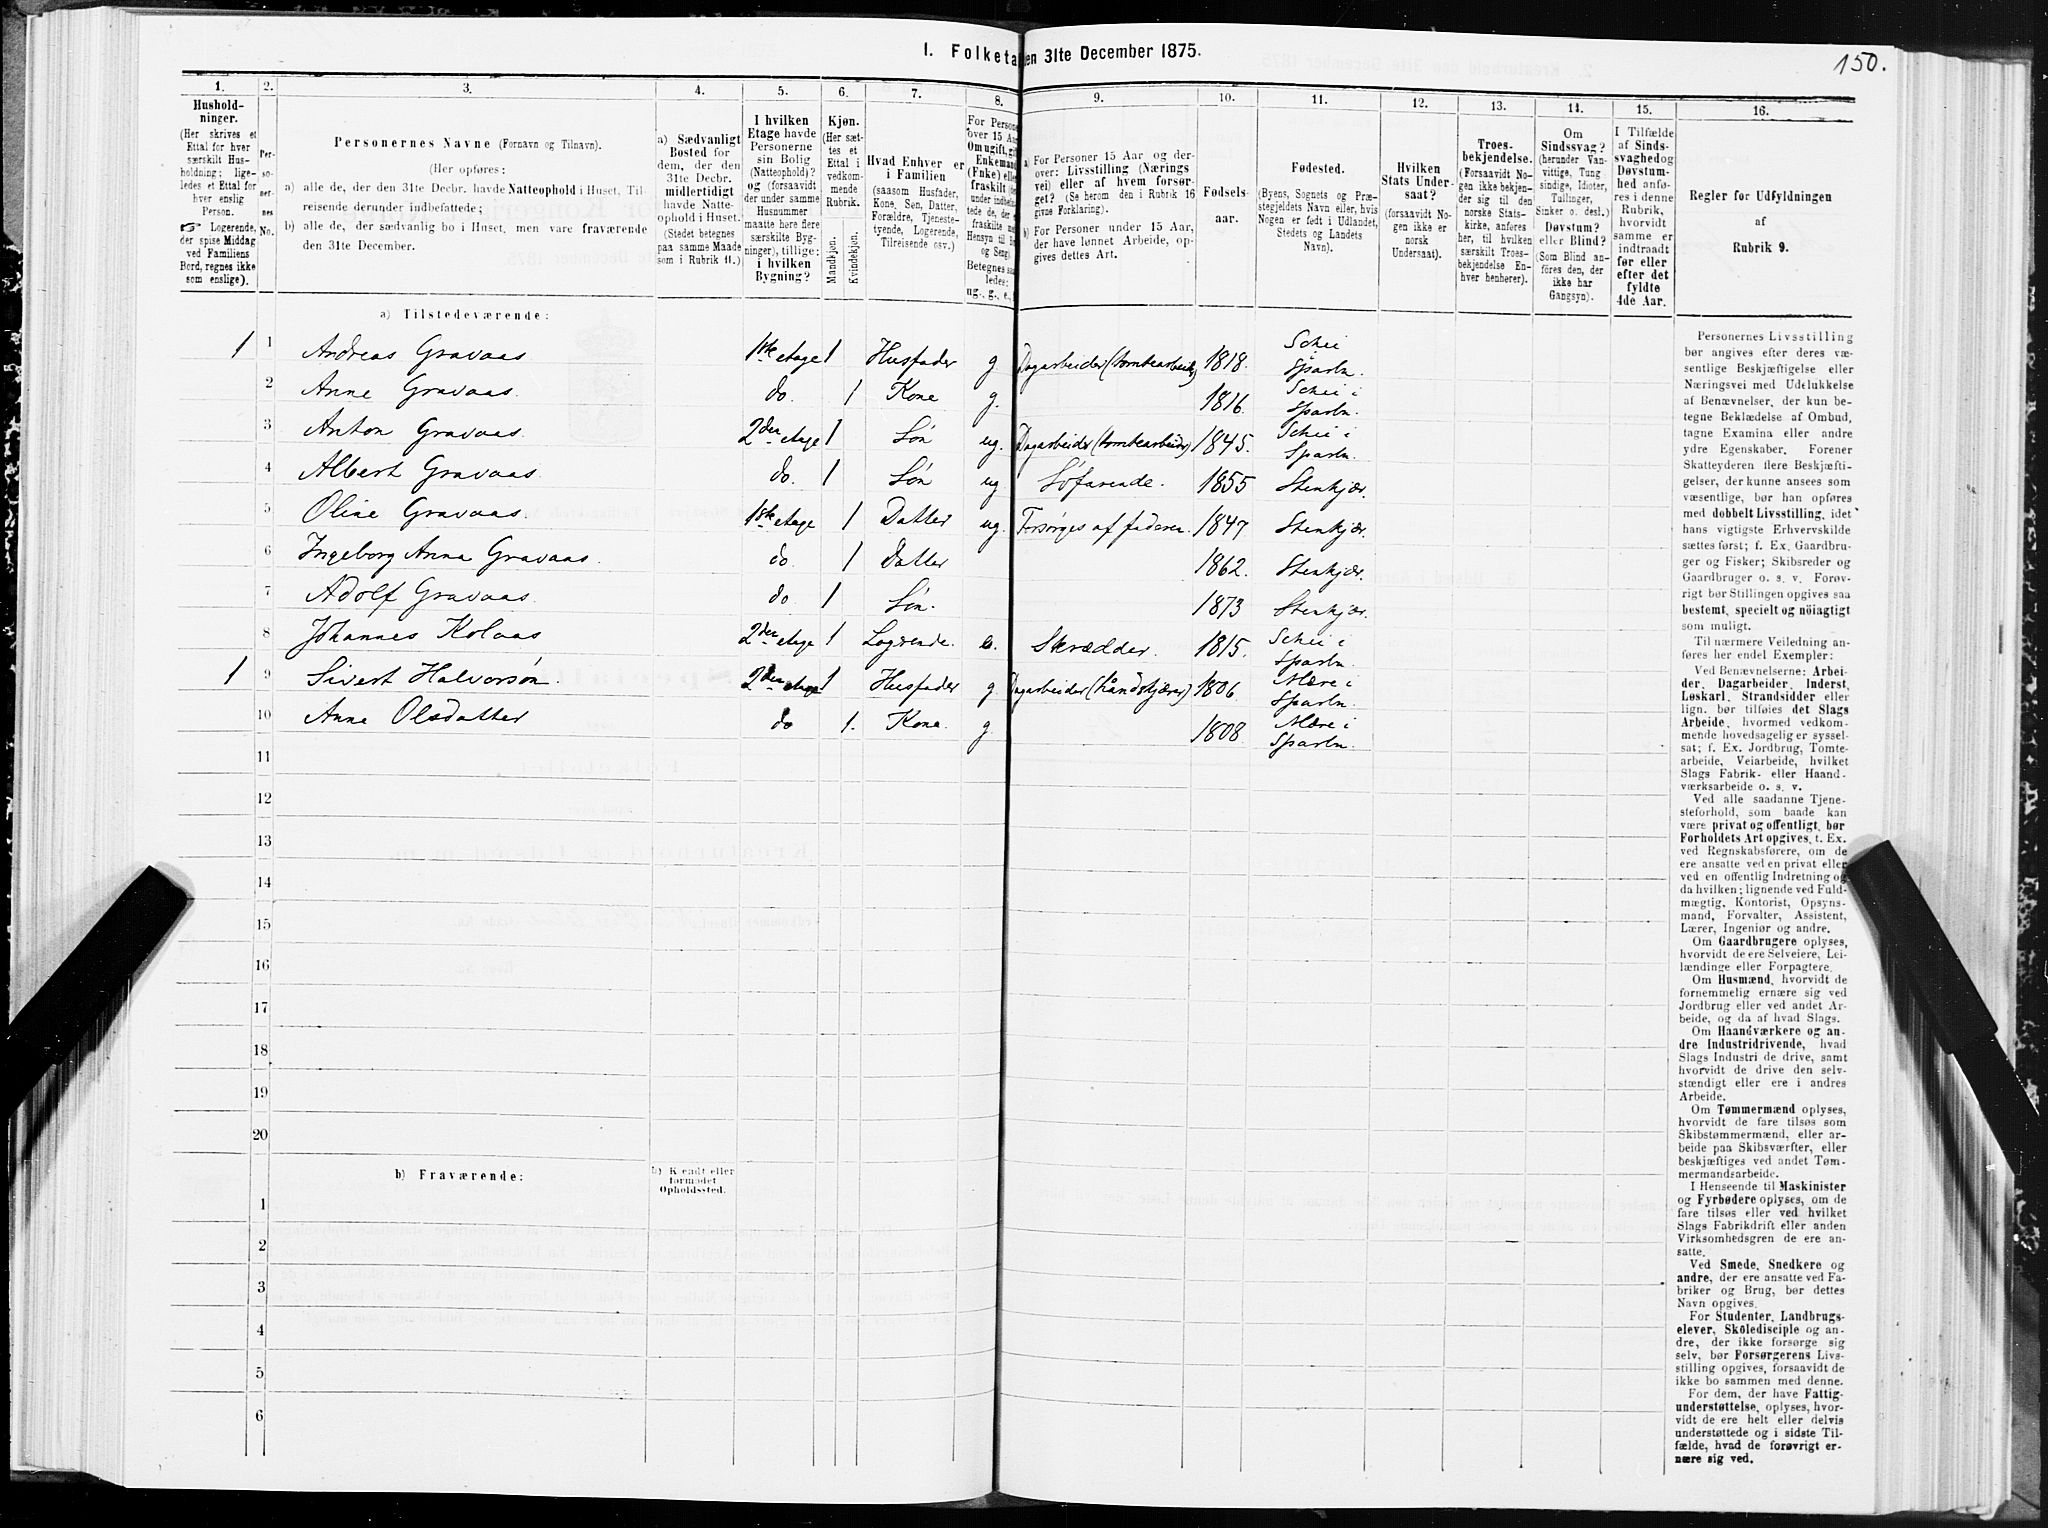 I. Folketa en 31te December 1875.
150.
1. 2. 3. 4. 5. 6. 7. 8. 9. 10. 11. 12. 13. 14. 15. 16.
Hushold-
ninger.
(Her skrives et
Ettal for hver
særskilt Hus-
holdning; lige-
ledes et Ettal for
hver enslig
Person.
☞ Logerende,
der spise Middag
ved Familiens
Bord, regnes ikke
som enslige).
Per-
so-
ner-
nes
No.
Personernes Navne (Fornavn og Tilnavn).
(Her opføres:
a) alle de, der den 31te Decbr. havde Natteophold i Huset, Til-
reisende derunder indbefattede;
b) alle de, der sædvanlig bo i Huset, men vare fraværende
den 31te December.
a) Sædvanligt
Bosted for
dem, der den
31te Decbr.
midlertidigt
havde Natte-
ophold i Huset.
(Stedet betegnes
paa samme Maade
som i Rubrik 11.)
I hvilken
Etage havde
Personerne
sin Bolig
(Natteophold)?
og (forsaavidt
der under samme
Husnummer
maatte høre flere
særskilte Byg-
ninger), tillige:
i hvilken
Bygning?
Kjøn.
(Her sæt-
tes et
Ettal i
vedkom-
mende
Rubrik.
Mandkjøn.
Kvindekjøn.
Hvad Enhver er
i Familien
(saasom Husfader,
Kone, Søn, Datter,
Forældre, Tjeneste-
tyende, Logerende,
Tilreisende osv.)
For Persone
over 15 Aa
Om ugift, gif
Enkeman
(Enke) elle
fraskilt
Betegnes saa
ledes:
ug., g., e.,
a) For Personer 15 Aar og der-
over: Livsstilling (Nærings
vei) eller af hvem forsør-
get? (Se herom den i Rubrik 16
givne Forklaring).
b) For Personer under 15 Aar,
der have lønnet Arbeide, op-
gives dettes Art.
Fødsels-
aar.
Fødested.
(Byens, Sognets og Præ-
stegjeldets Navn eller, hvis
Nogen er født i Udlandet,
Stedets og Landets
Navn).
Hvilken
Stats Under-
saat?
(forsaavidt No-
gen ikke er
norsk
Undersaat).
Troes-
bekjendelse.
(Forsaavidt No-
gen ikke bekjen-
der sig til den
norske Stats-
kirke, anføres
her, til hvilken
særskilt Troes-
bekjendelse En-
hver henhører).
Om
Sindssvag?
(herunder Van-
vittige, Tung
sindige, Idioter,
Tullinger,
Sinker o. desl.)
Døvstum?
eller Blind?
(Som Blind an-
føres den, der
ikke har
Gangsyn).
I Tilfælde
af Sinds-
svaghed og
Døvstum-
hed anfø-
res i denne
Rubrik,
hvorvidt
samme er
indtraadt
før eller
efter det
fyldte
4de Aar.
Regler for Udfyldningen
af
Rubrik 9.
a) Tilstedeværende:
1 1 Andreas Gravaas 1ste etage 1 Husfader g Dagarbeider (tomtearbeider) 1818. Schei Sparbu.
2 Anne Gravaas. do. 1 Kone g. 1816. Schei i Sparbu.
3 Anton Gravaas. 2den etage 1 Søn ug. Dagarbeider (tomtearbeider) 1845. Schei i Sparbu.
4 Albert Gravaas. do. 1 Søn ug Søfarende. 1855 Stenkjær.
5 Oline Gravaas. 1ste etage 1 Datter ug. Forsørges af faderen. 1847 Stenkjær.
6 Ingeborg Anna Gravaas. do. 1 Datter 1862. Stenkjær.
7 Adolf Gravaas. do. 1 Søn. 1873 Stenkjær.
8 Johannes Kolaas 2den etage 1 Logerende. e. Skrædder. 1815. Schei i Sparbu.
1 9 Sivert Halvorsøn. 2den etage 1 Husfader g Dagarbeider 1806 Mære i Sparbu.
10 Anne Olsdatter do 1. Kone. g. 1808. Mære i Sparbu.
11
12
13
14
15
16
17
18
19
20
b) Fraværende:
b) Kjendt eller
formodet
Opholdssted.
1
2
3
4
5
6
Personernes Livsstilling
bør angives efter deres væ-
sentlige Beskjæftigelse eller
Næringsvei med Udelukkelse
af Benævnelser, der kun be-
tegne Beklædelse af Ombud,
tagne Examina eller andre
ydre Egenskaber. Forener
Skatteyderen flere Beskjæfti-
gelser, der kunne ansees som
væsentlige, bør han opføres
med dobbelt Livsstilling, idet
hans vigtigste Erhvervskilde
sættes først; f. Ex. Gaardbru-
ger og Fisker; Skibsreder og
Gaardbruger o. s. v. Forøv-
rigt bør Stillingen opgives saa
bestemt, specielt og nöiagtigt
som muligt.
Til nærmere Veiledning an-
føres her endel Exempler:
Ved Benævnelserne: Arbei-
der, Dagarbeider, Inderst,
Løskarl, Strandsidder eller
lign. bør tilføies det Slags
Arbeide, hvormed vedkom-
mende hovedsagelig er syssel-
sat; f. Ex. Jordbrug, Tomte-
arbeide, Veiarbeide, hvilket
Slags Fabrik- eller Haand-
værksarbeide o. s. v.
Ved alle saadanne Tjene-
steforhold, som baade kan
være privat og offentligt, bør
Forholdets Art opgives, t. Ex.
ved Regnskabsførere, om de
ere ansatte ved en privat eller
ved en offentlig Indretning og
da hvilken; lignende ved Fuld-
mægtig, Kontorist, Opsyns-
mand, Forvalter, Assistent,
Lærer, Ingeniør og andre.
Om Gaardbrugere oplyses,
hvorvidt de ere Selveiere, Lei-
lændinge eller Forpagtere.
Om Husmænd, hvorvidt de
fornemmelig ernære sig ved
Jordbrug eller ved andet Ar-
beide, og da af hvad Slags.
Om Haandværkere og an-
dre Industridrivende, hvad
Slags Industri de drive, samt
hvorvidt de drive den selv-
stændigt eller ere i andres
Arbeide.
Om Tømmermænd oplyses,
hvorvidt de fare tilsøs som
Skibstømmermænd, eller ar-
beide paa Skibsværfter, eller
beskjæftiges ved andet Tøm-
mermandsarbeide.
I Henseende til Maskinister
og Fyrbødere oplyses, om de
fare tilsøs eller ved hvilket
Slags Fabrikdrift eller anden
Virksomhedsgren de ere an-
satte.
Ved Smede, Snedkere og
andre, der ere ansatte ved Fa-
briker og Brug, bør dettes
Navn opgives.
For Studenter, Landbrugs-
elever, Skoledisciple og an-
dre, der ikke forsørge sig
selv, bør Forsørgerens Livs-
stilling opgives, forsaavidt de
ikke bo sammen med denne.
For dem, der have Fattig-
understøttelse, oplyses, hvor-
vidt de ere helt eller delvis
understøttede og i sidste Til-
fælde, hvad de forøvrigt er-
nære sig ved.